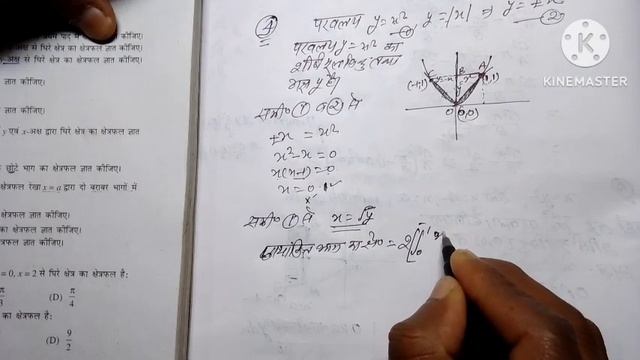 ज्ञात कीजिए।
अक्ष से घिरे क्षेत्र का क्षेत्रफल ज्ञात कीजिए।
अक्ष से घिरे क्षेत्र का क्षेत्रफल ज्ञात कीजिए।
ज्ञात कीजिए।
ज्ञात कीजिए।
y एवं x-अक्ष द्वारा घिरे क्षेत्र का क्षेत्रफल ज्ञात
छोटे भाग का क्षेत्रफल ज्ञात कीजिए।
क्षेत्रफल रेखा x = a द्वारा दो बराबर भागों में
क्षेत्रफल ज्ञात कीजिए।
का क्षेत्रफल ज्ञात कीजिए।
क्षेत्रफल ज्ञात कीजिए।
= 0, x = 2 से घिरे क्षेत्र का क्षेत्रफल है:
(D) π/4
का क्षेत्रफल है:
(D) 9/2
④ परवलय y = x² y = |x| ⇒ y = ±x
परवलय y = x² का
शीर्ष मूलबिन्दु तथा
अक्ष y है।
समी० ① व ② से
±x = x²
x² - x = 0
x(x-1) = 0
x = 0, 1
समी० ① से x = √y
छायांकित भाग का क्षे० = 2[∫₀¹
(-1,1)
B
A
(1,1)
0 (0,0)
KINEMASTER